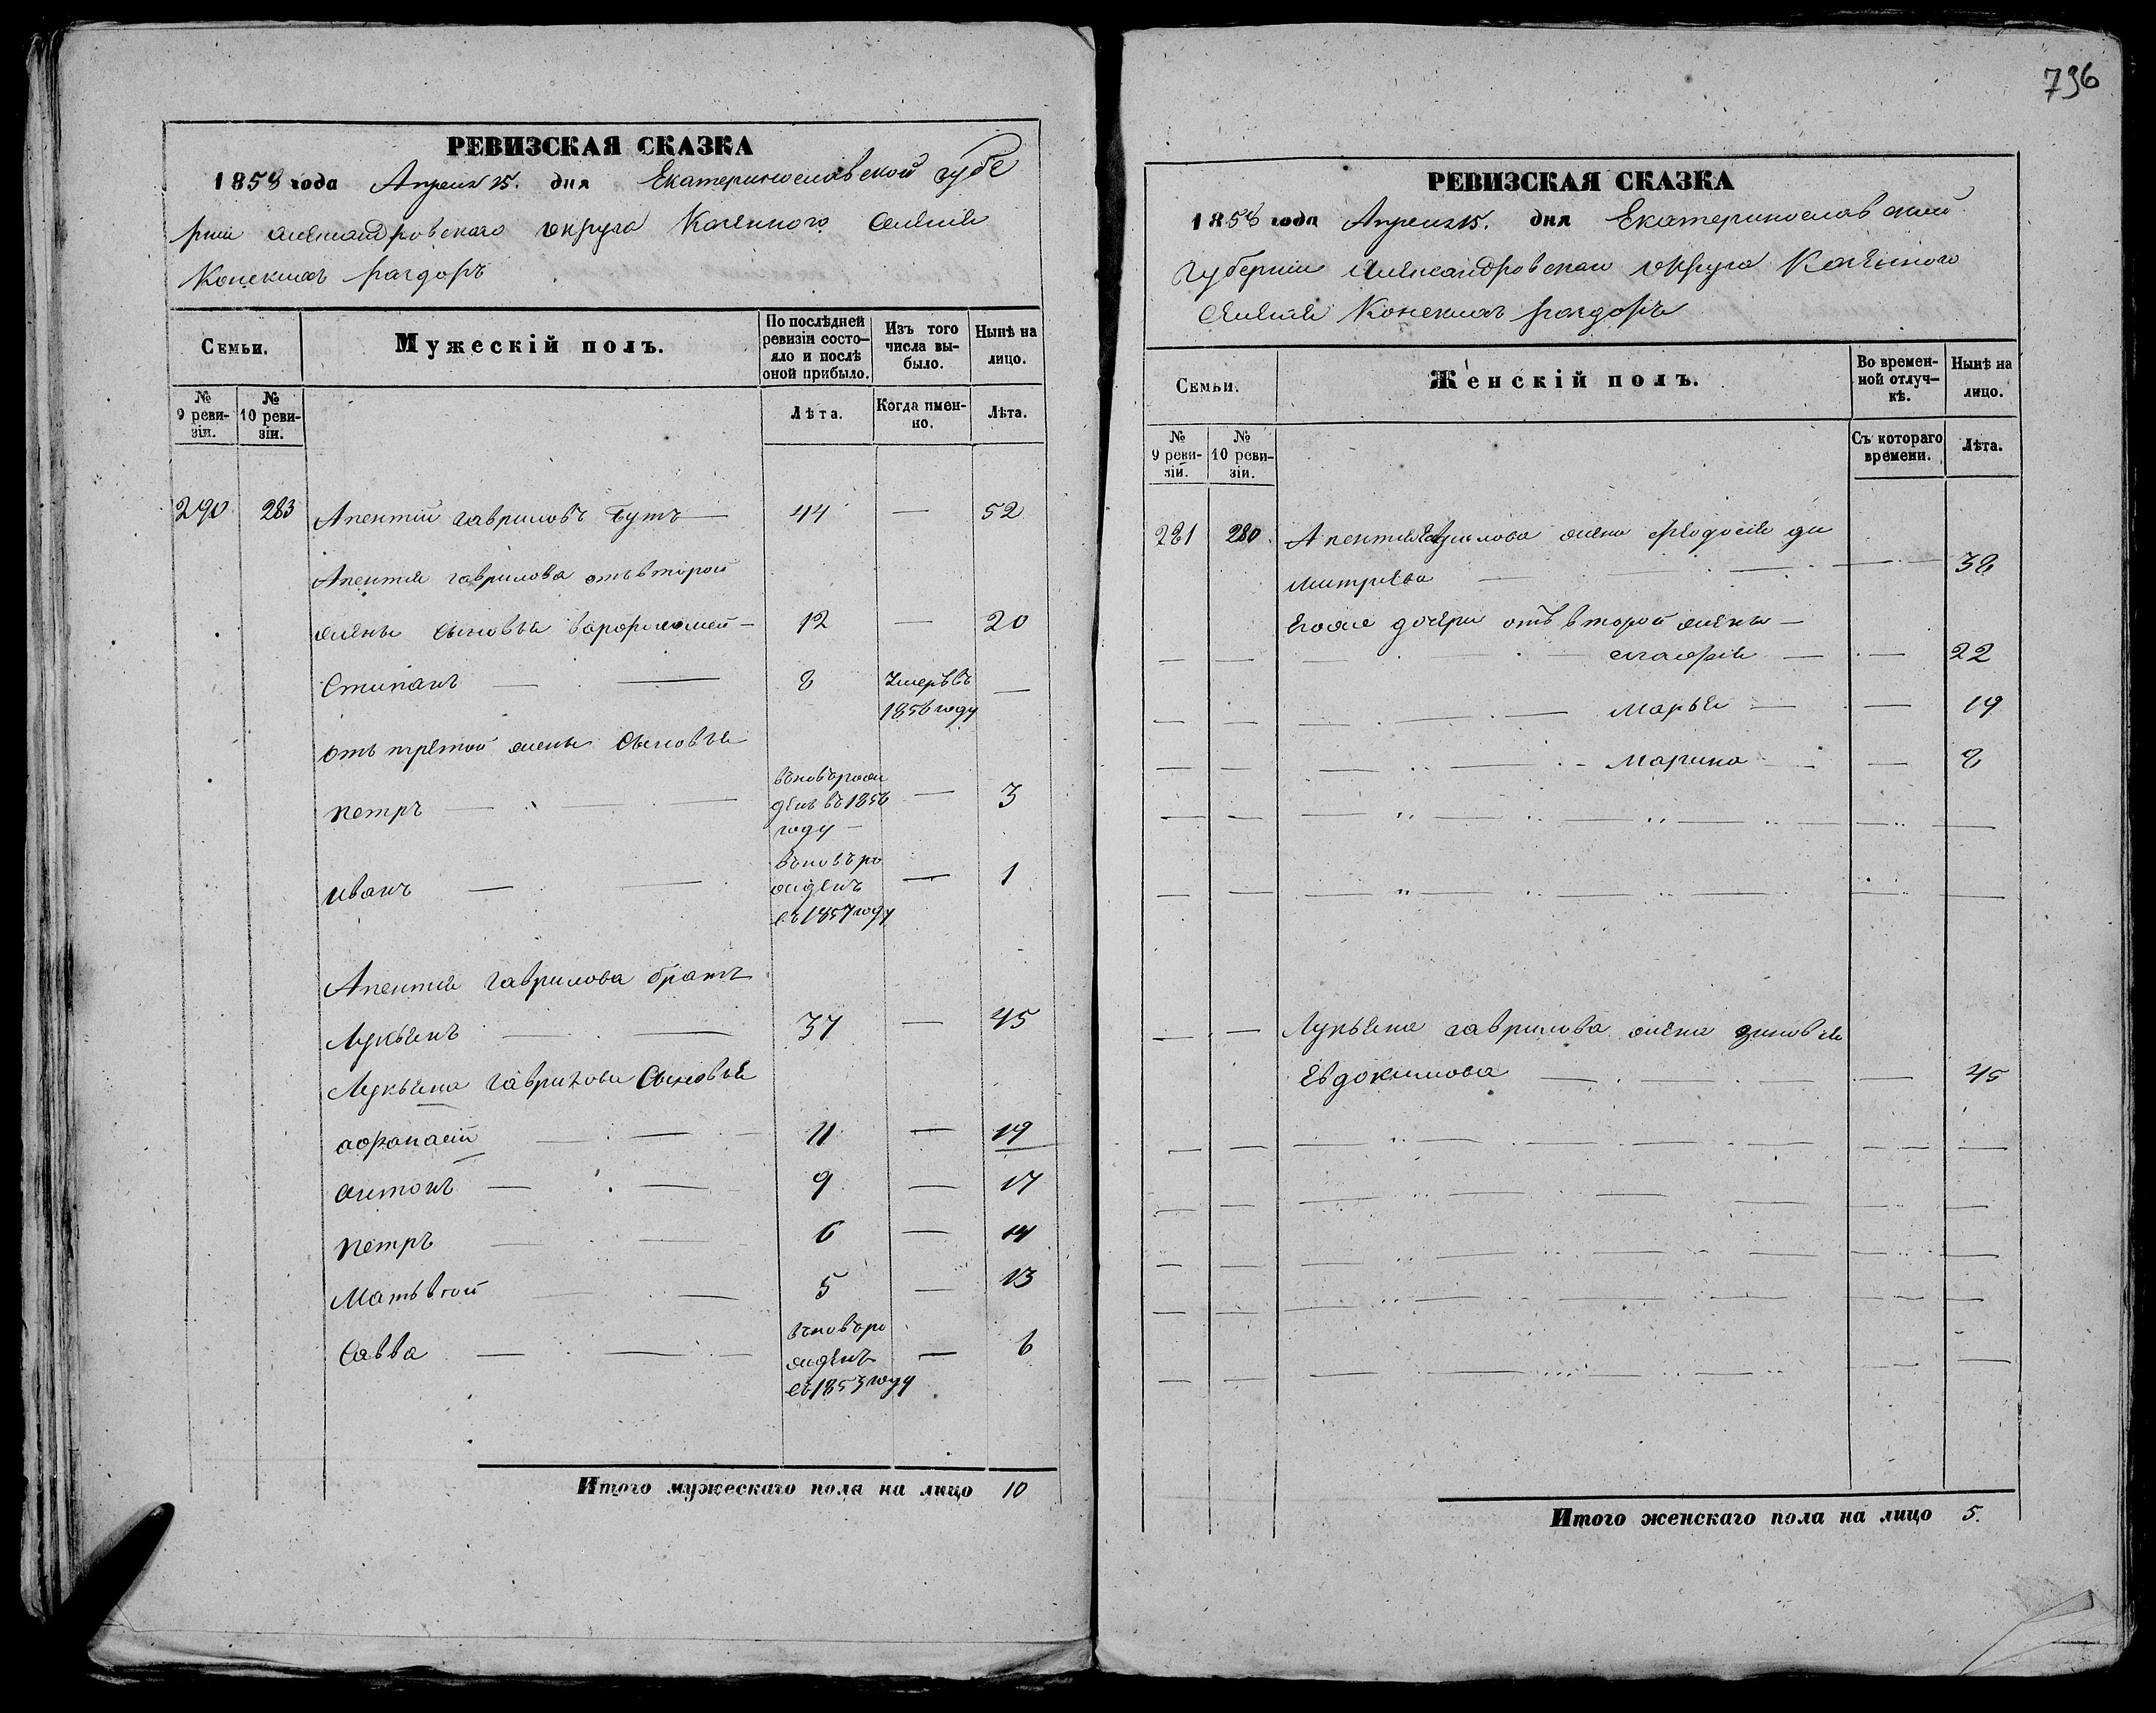 РЕВИЗСКАЯ СКАЗКА
1858 года Апреля 15. дня Екатеринославской губе
рнии Александровского округа Казенного селения
Конскихъ раздоръ
Семьи.
Мужескій полъ.
По послѣдней ревизіи состо-яло и послѣ оной прибыло.
Изъ того числа вы-было.
Нынѣ на лицо.
№ 9 реви-зіи.
№ 10 реви-зіи.
Лѣта.
Когда имен-но.
Лѣта.
290 283 Апентий гавриловъ Бутъ — 44 — 52
Апентия гаврилова отъ второй
жены сыновья варфоломей — 12 — 20
Стипанъ — 8 Умеръ въ 1856 году —
отъ третой жены сыновья
петръ — вновь рож денъ въ 1856 году — — 3
иванъ — вновь ро жденъ въ 1857 году — 1
Апентия гаврилова братъ
Лукьянъ — 37 — 45
Лукьяна гаврилова сыновья
афанасий — 11 — 19
антонъ — 9 — 17
петръ — 6 — 14
Матьвей — 5 — 13
Савва — вновь ро жденъ въ 1853 году — 6
Итого мужескаго пола на лицо 10
796
РЕВИЗСКАЯ СКАЗКА
1858 года Апреля 15. дня Екатеринославской
Губернии Александровскаго округа Казенного
селения Конскихъ раздоръ
Семьи.
Женскій полъ.
Во времен-ной отлуч-кѣ.
Нынѣ на лицо.
№ 9 реви-зіи.
№ 10 реви-зіи.
Съ котораго времени.
Лѣта.
281 280 Апентия Гаврилова жена федосия ди
митриева — 38
Егоже дочери отъ второй жены —
— 22
Марья — — 19
Марина — — 8
Лукьяна гаврилова жена зиновия
Евдокимова — — 45
Итого женскаго пола на лицо 5.